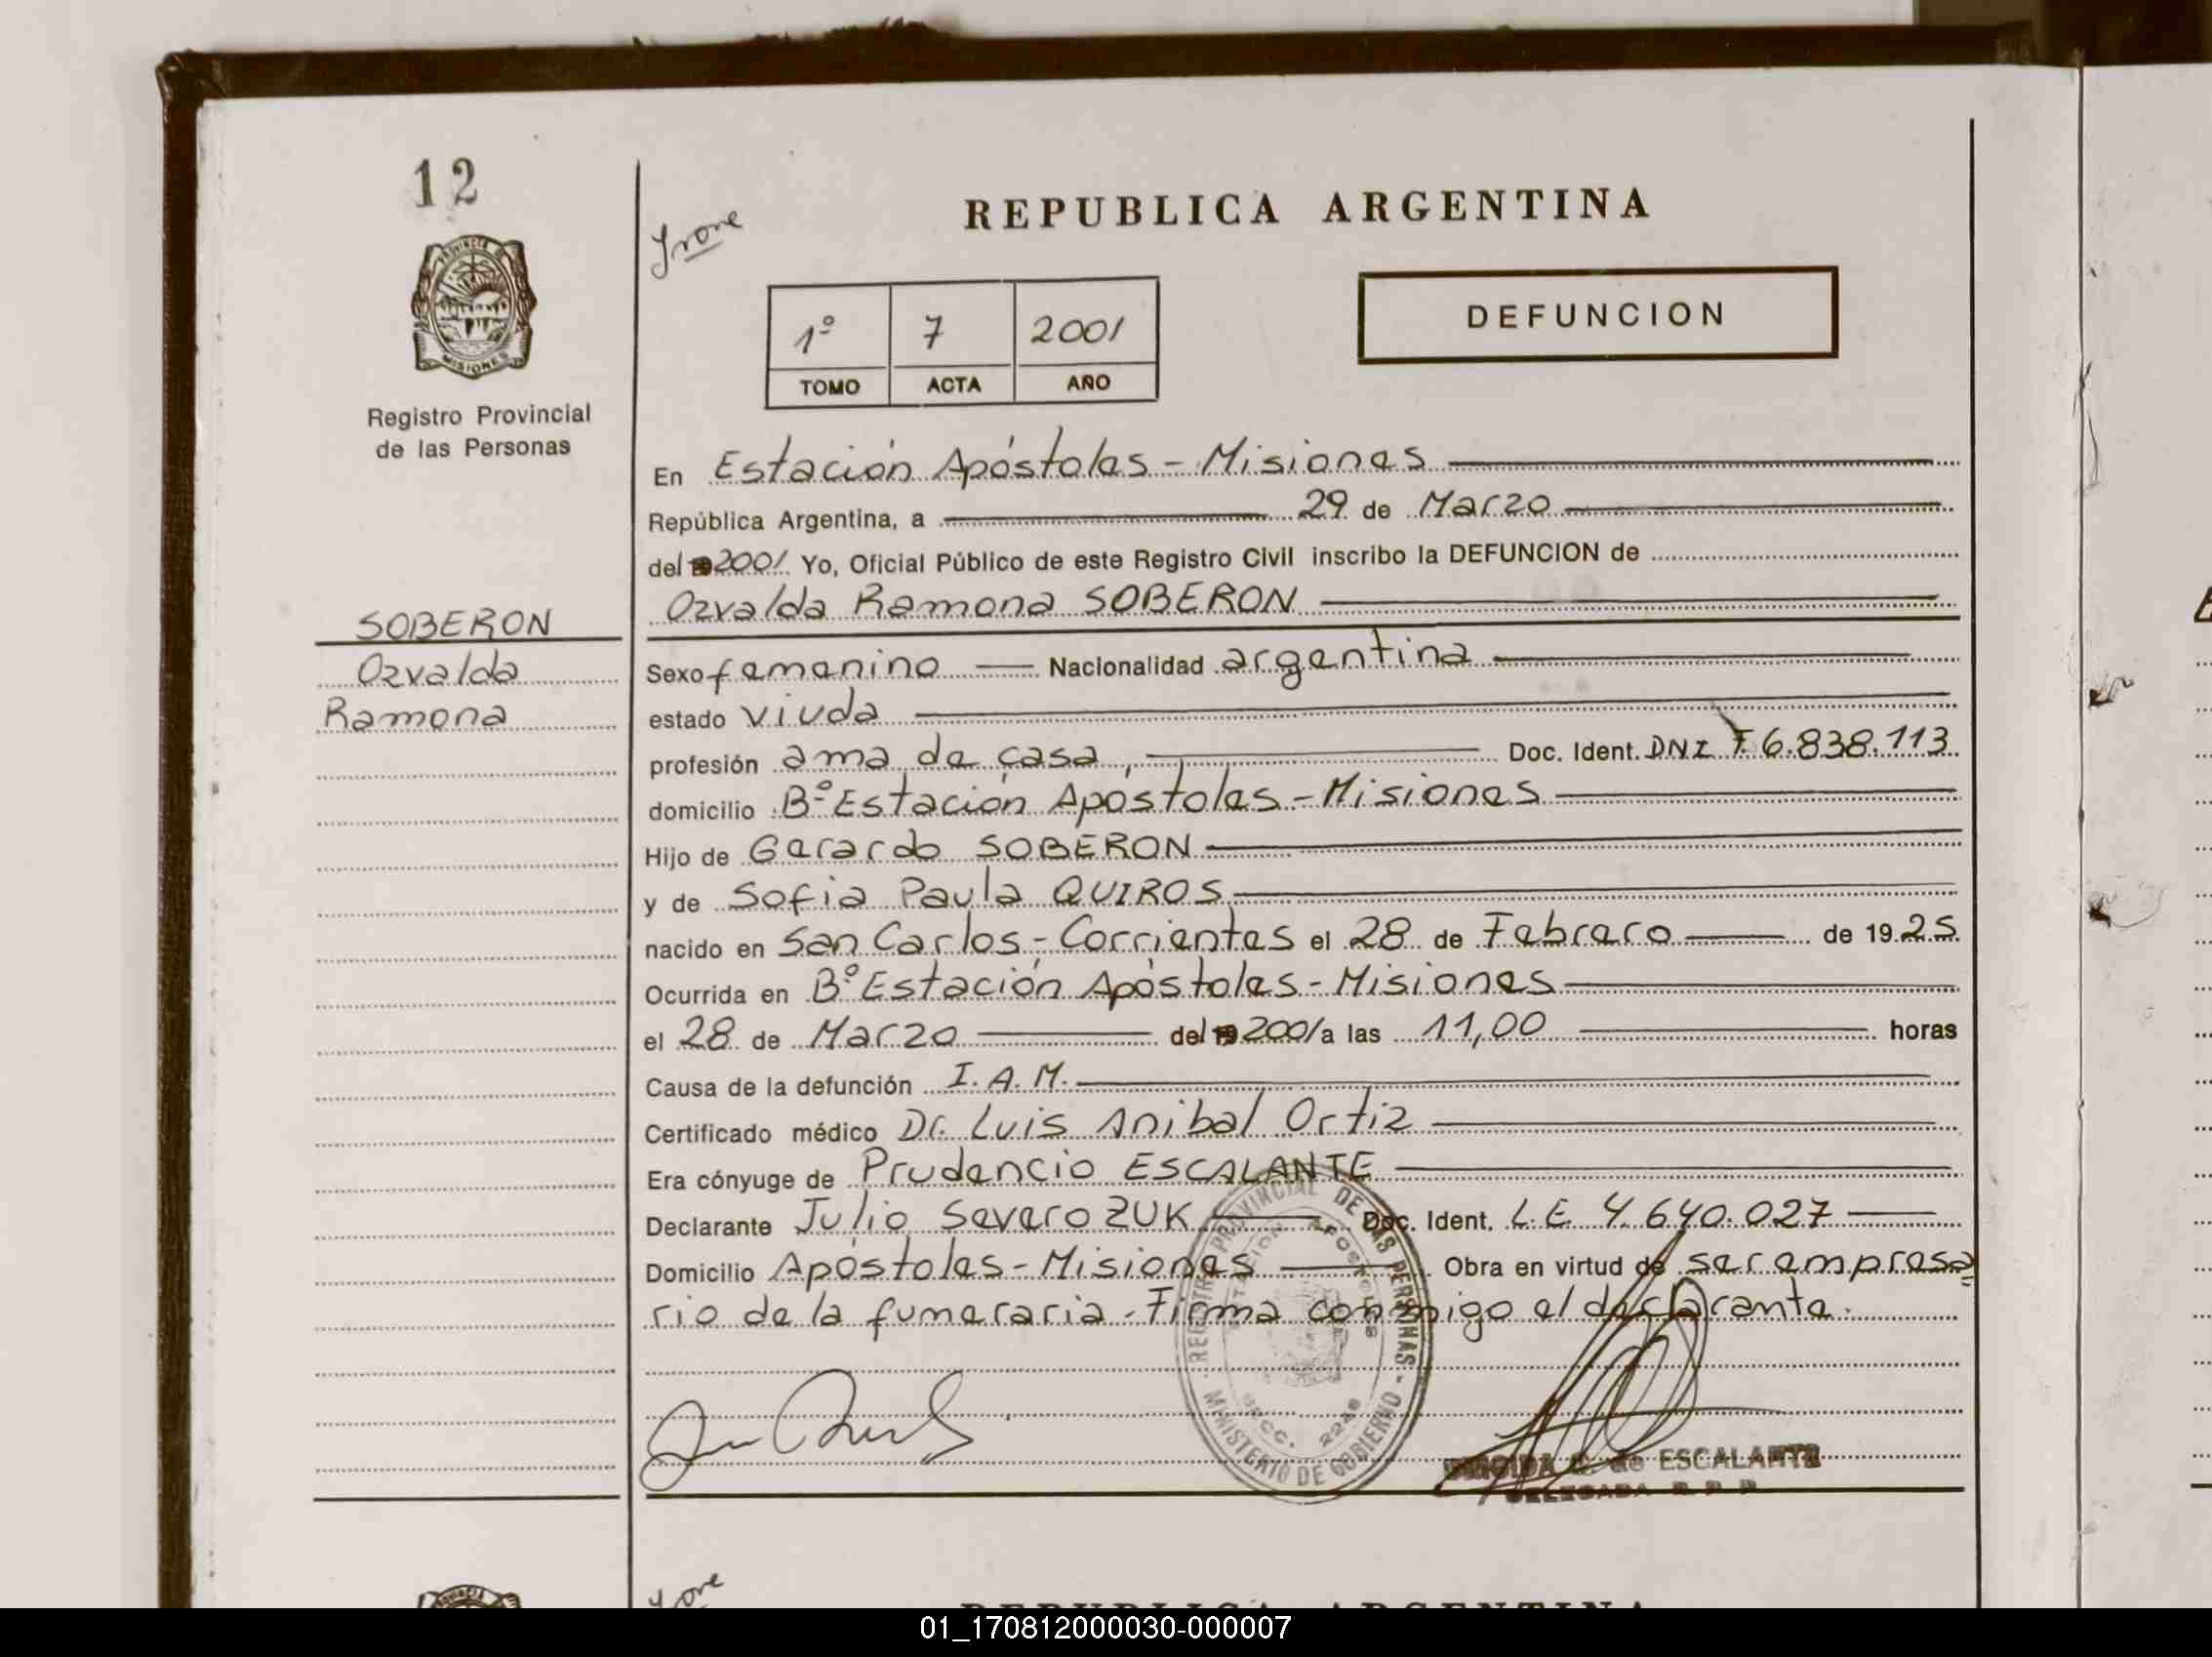 12
PROVINCIA
MISIONES
Registro Provincial
de las Personas
SOBERON
Ozvalda
Ramona
REPUBLICA ARGENTINA
1º 7 2001
TOMO ACTA AÑO
DEFUNCION
En Estación Apóstoles - Misiones
República Argentina, a 29 de Marzo
del 2001 Yo, Oficial Público de este Registro Civil inscribo la DEFUNCION de
Ozvalda Ramona SOBERON
Sexo femenino Nacionalidad argentina
estado viuda
profesión ama de casa, Doc. Ident. DNI F 6.838.113
domicilio Bº Estación Apóstoles - Misiones
Hijo de Gerardo SOBERON
y de Sofia Paula QUIROS
nacido en San Carlos - Corrientes el 28 de Febrero de 1925
Ocurrida en Bº Estación Apóstoles - Misiones
el 28 de Marzo del 2001 a las 11,00 horas
Causa de la defunción I.A.M.
Certificado médico Dr. Luis Anibal Ortiz
Era cónyuge de Prudencio ESCALANTE
Declarante Julio Severo ZUK Doc. Ident. L.E 4.640.027
Domicilio Apóstoles - Misiones Obra en virtud de ser empresa
rio de la funeraria - Firma conmigo el declarante.
REGISTRO PROVINCIAL DE LAS PERSONAS - MINISTERIO DE GOBIERNO -
ESTACION APOSTOLES
SECC. 2246
de ESCALANTE
DELEGADA R. P. P.
REPUBLICA ARGENTINA
01_170812000030-000007